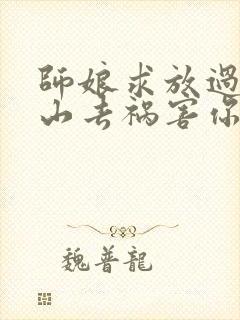 師娘求放過
山去禍害你
魏普龍